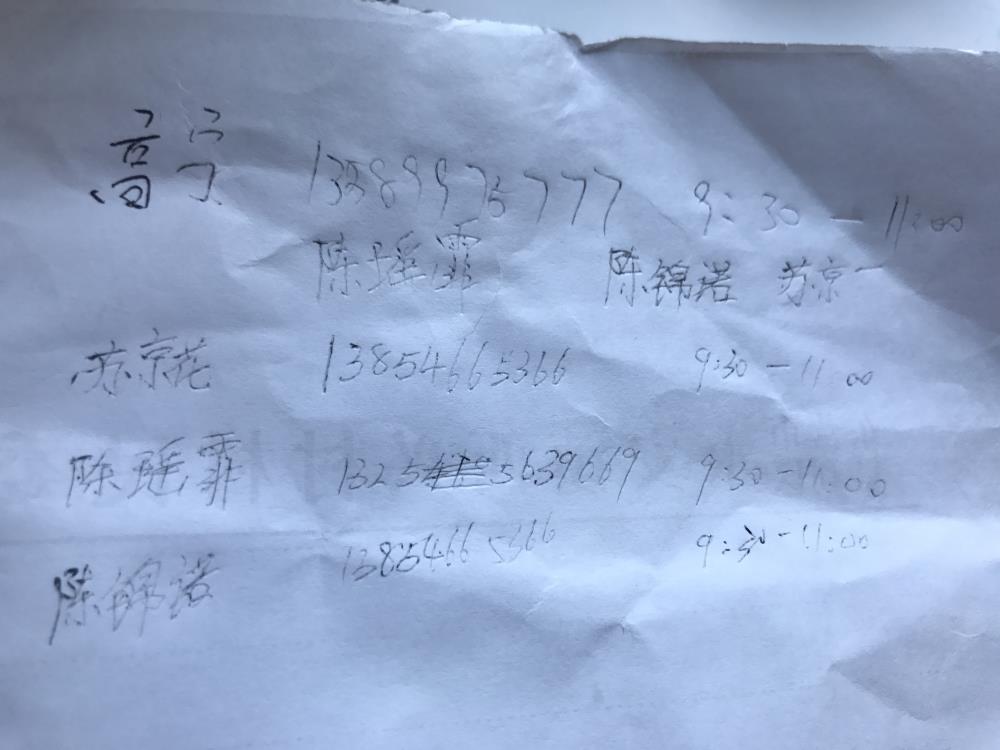 高宁 13589975777 9:30-11:00
陈瑶霏 陈锦诺 苏京一
苏京花 13854665366 9:30-11:00
陈瑶霏 13255639669 9:30-11:00
陈锦诺 13854665366 9:30-11:00